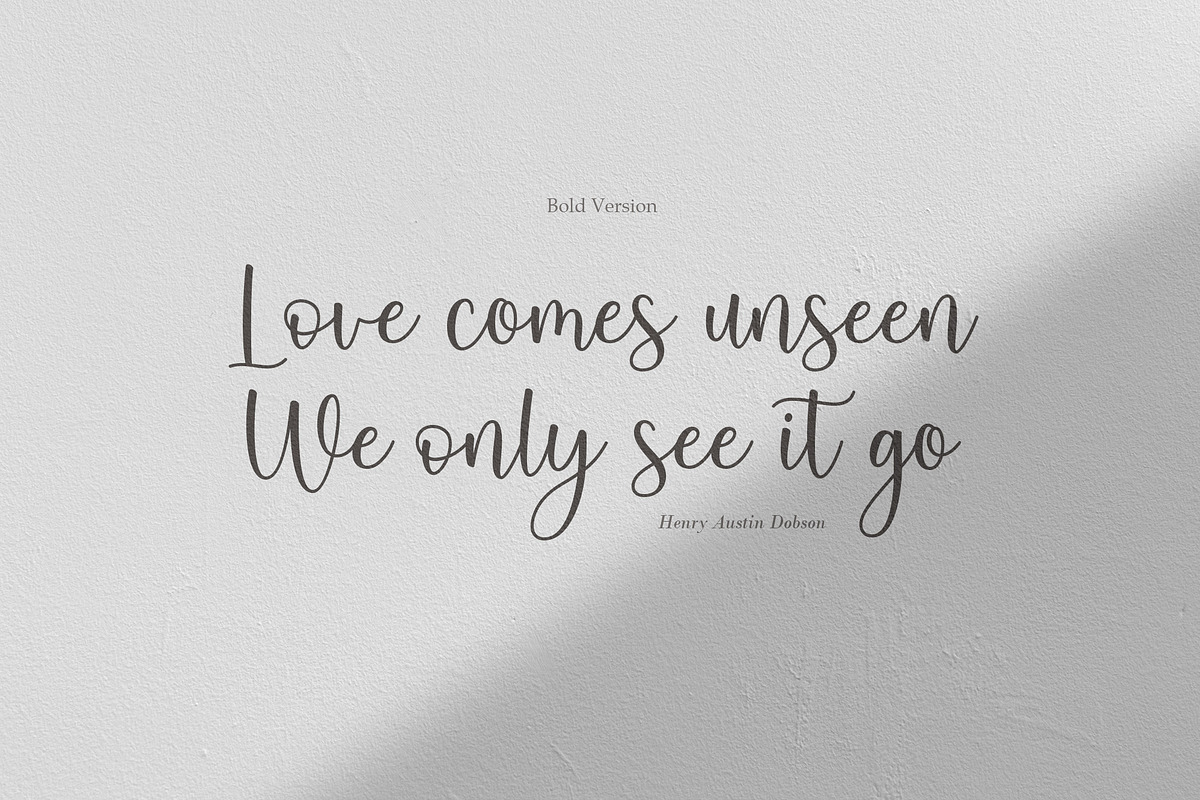 Bold Version
Love comes unseen
We only see it go
Henry Austin Dobson